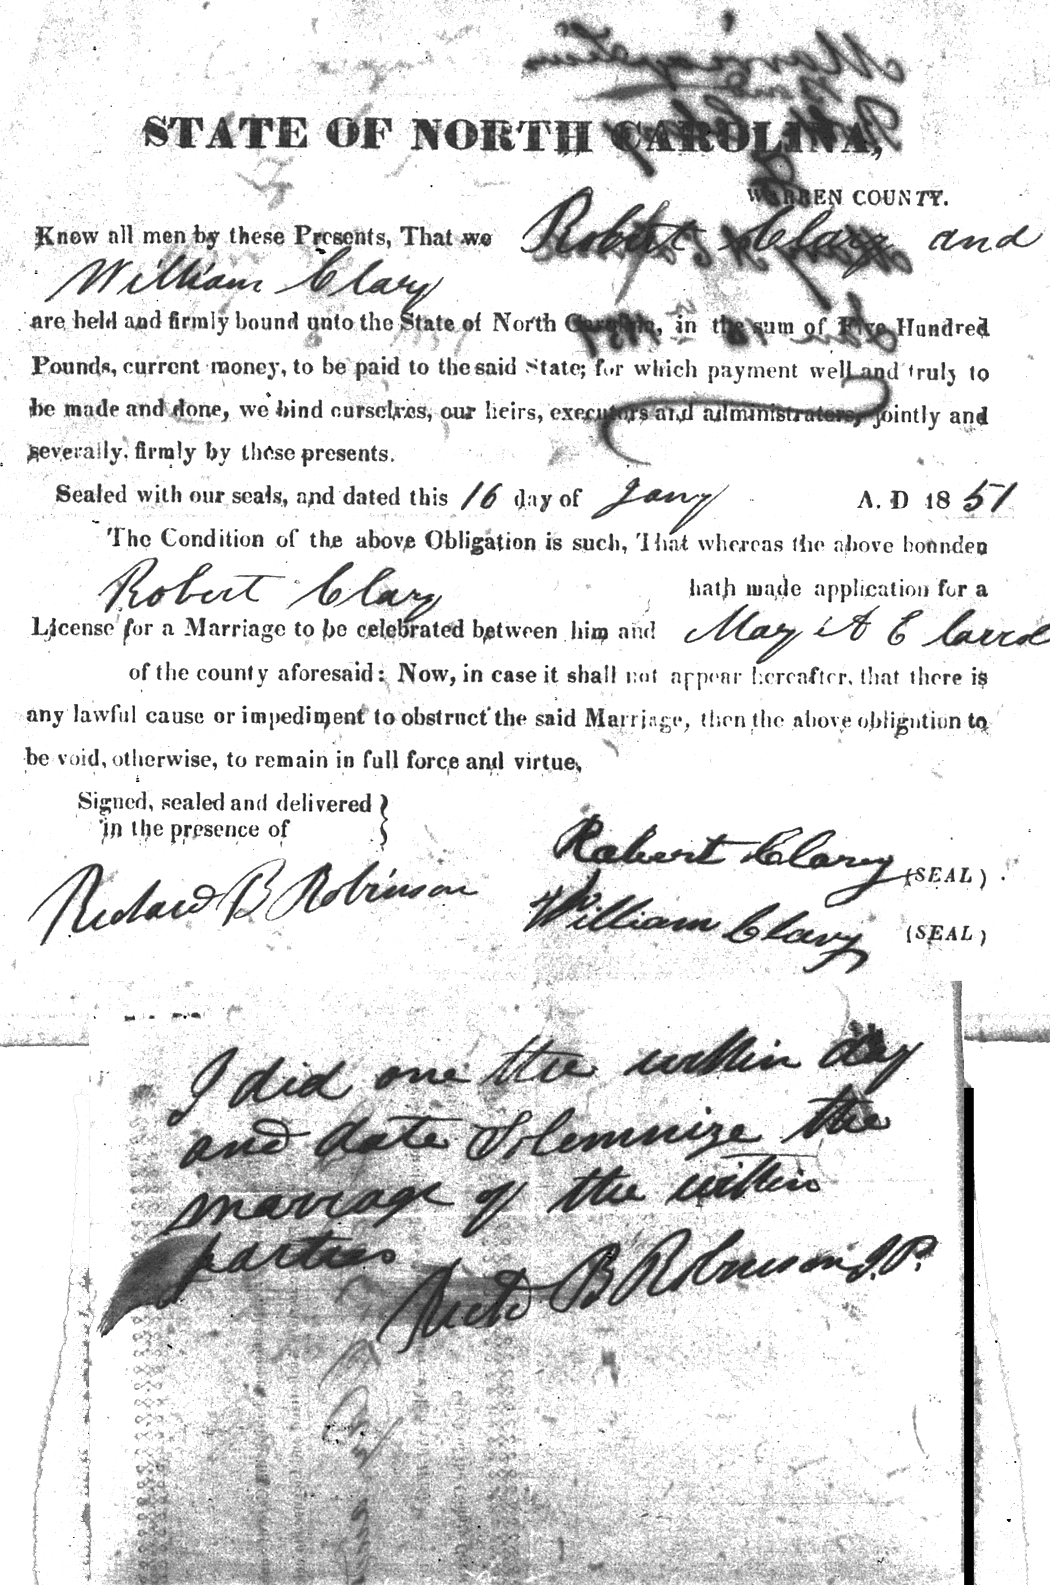 STATE OF NORTH CAROLINA,
WARREN COUNTY.
Know all men by these Presents, That we Robert Clary and
William Clary
are held and firmly bound unto the State of North Carolina, in the sum of Five Hundred
Pounds, current money, to be paid to the said State; for which payment well and truly to
be made and done, we bind ourselves, our heirs, executors and administrators, jointly and
severally, firmly by these presents.
Sealed with our seals, and dated this 16 day of Jany A. D 1851
The Condition of the above Obligation is such, That whereas the above bounden
Robert Clary hath made application for a
License for a Marriage to be celebrated between him and May A E Carrol
of the county aforesaid: Now, in case it shall not appear hereafter, that there is
any lawful cause or impediment to obstruct the said Marriage, then the above obligation to
be void, otherwise, to remain in full force and virtue,
Signed, sealed and delivered
in the presence of
Robert Clary (SEAL)
Richard B Robinson
William Clary (SEAL)
I did one the within day
and date Solemnize the
marriage of the within
parties
Richd B Robinson J.P.